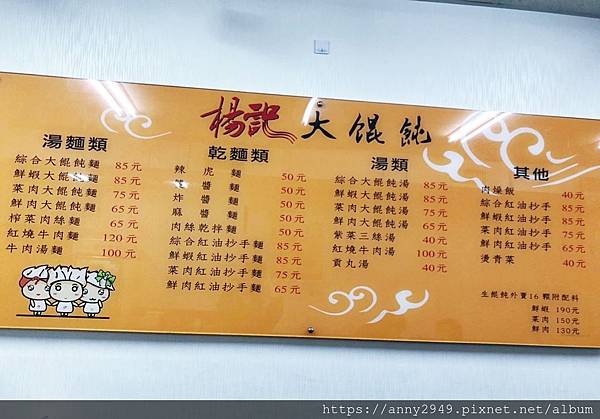 楊記大餛飩
湯麵類
綜合大餛飩麵 85元
鮮蝦大餛飩麵 85元
菜肉大餛飩麵 75元
鮮肉大餛飩麵 65元
榨菜肉絲麵 65元
紅燒牛肉麵 120元
牛肉湯麵 100元
乾麵類
辣虎麵 50元
醬麵 50元
炸醬麵 50元
麻醬麵 50元
肉絲乾拌麵 50元
綜合紅油抄手麵 85元
鮮蝦紅油抄手麵 85元
菜肉紅油抄手麵 75元
鮮肉紅油抄手麵 65元
湯類
綜合大餛飩湯 85元
鮮蝦大餛飩湯 85元
菜肉大餛飩湯 75元
鮮肉大餛飩湯 65元
紫菜三絲湯 40元
紅燒牛肉湯 100元
貢丸湯 40元
其他
肉燥飯 40元
綜合紅油抄手 85元
鮮蝦紅油抄手 85元
菜肉紅油抄手 75元
鮮肉紅油抄手 65元
燙青菜 40元
生餛飩外賣16顆附配料
鮮蝦 190元
菜肉 150元
鮮肉 130元
https://anny2949.pixnet.net/album